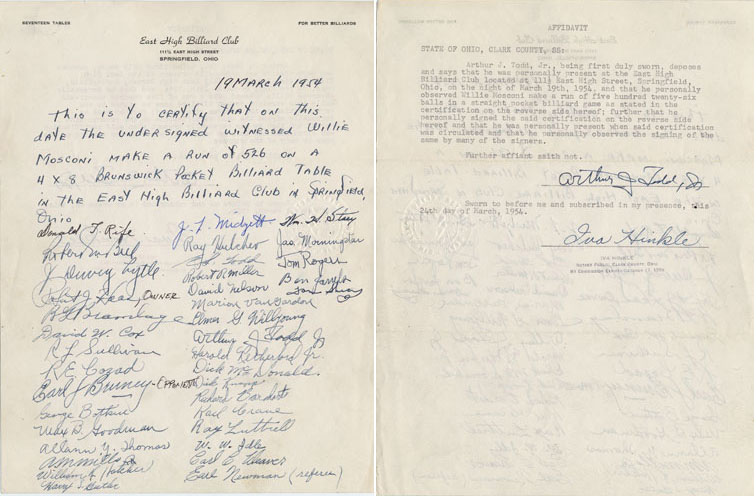 SEVENTEEN TABLES
FOR BETTER BILLIARDS
East High Billiard Club
111½ EAST HIGH STREET
SPRINGFIELD, OHIO
19 MARCH 1954
This is To CERTIFY THAT ON THIS
DATE THE UNDERSIGNED WITNESSED WILLIE
MOSCONI MAKE A RUN OF 526 ON A
4 X 8 BRUNSWICK POCKET BILLIARD TABLE
IN THE EAST HIGH BILLIARD CLUB IN SPRINGFIELD,
OHIO
Donald T. Rife
OWNER
David W. Cox
R L Sullivan
R E Cozad
Earl J Bruney - OPPONENT
George
Max B. Goodman
Allann Y. Thomas
William
Harry
J. F. Midgett
Ray
Todd
Robert Miller
David Nelson
Marion Van Gordon
Elmer G Willyoung
Arthur J Todd Jr
Harold Jr.
Dick McDonald.
Dick
Richard
Karl Crane
Ray Luttrell
W. W.
Carl E Weaver
Earl Newman (referee)
Wm. H
Jas. Morningstar
Tom Rogers
Ben
AFFIDAVIT
STATE OF OHIO, CLARK COUNTY, SS:
Arthur J. Todd, Jr., being first duly sworn, deposes
and says that he was personally present at the East High
Billiard Club located at 111½ East High Street, Springfield,
Ohio, on the night of March 19th, 1954, and that he personally
observed Willie Mosconi make a run of five hundred twenty-six
balls in a straight pocket billiard game as stated in the
certification on the reverse side hereof; further that he
personally signed the said certification on the reverse side
hereof and that he was personally present when said certification
was circulated and that he personally observed the signing of the
same by many of the signers.
Further affiant saith not.
Arthur J Todd, Jr
Sworn to before me and subscribed in my presence, this
24th day of March, 1954.
Iva Hinkle
IVA HINKLE
NOTARY PUBLIC, CLARK COUNTY, OHIO
MY COMMISSION EXPIRES OCTOBER